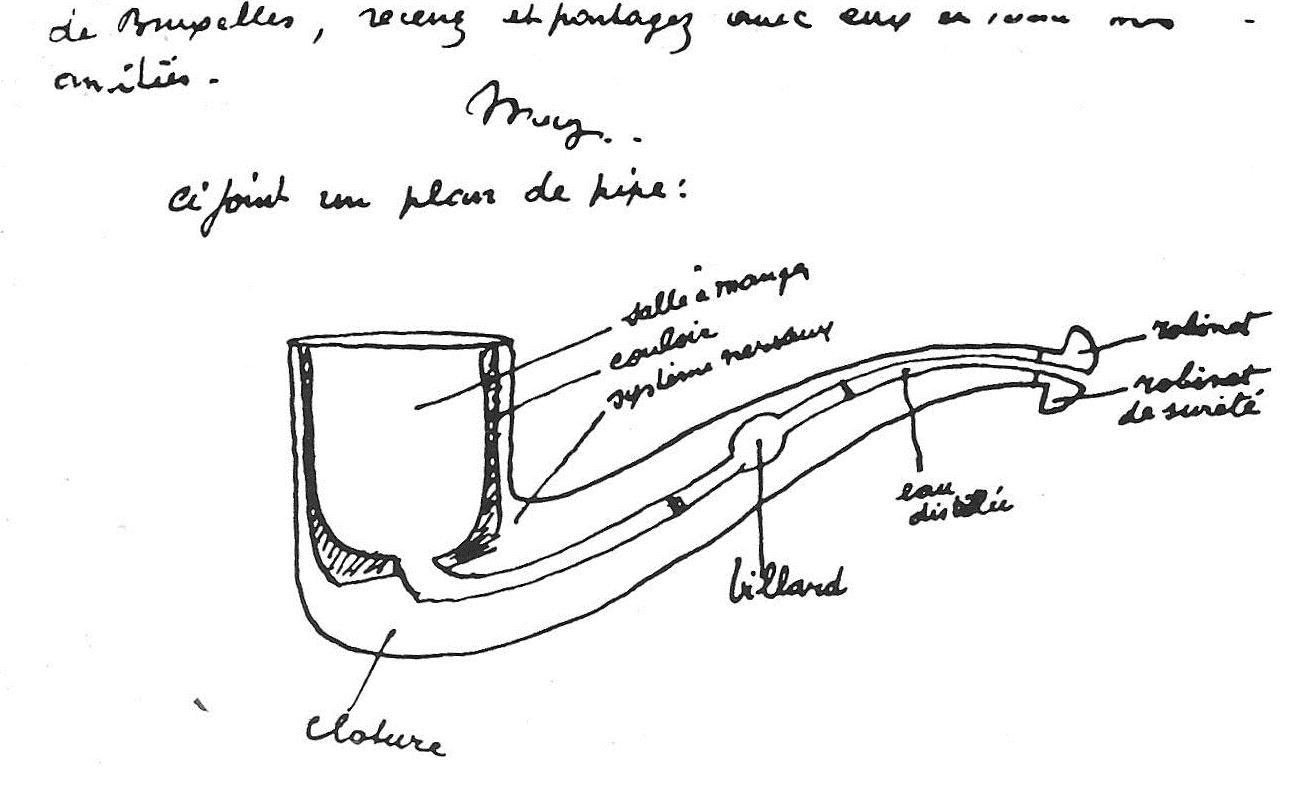 de Bruxelles, recevez et partagez avec eux
amitiés.
Mag..
Ci joint un plan de pipe:
salle à manger
couloir
système nerveux
robinet
robinet
de sureté
eau
distillée
billard
cloture